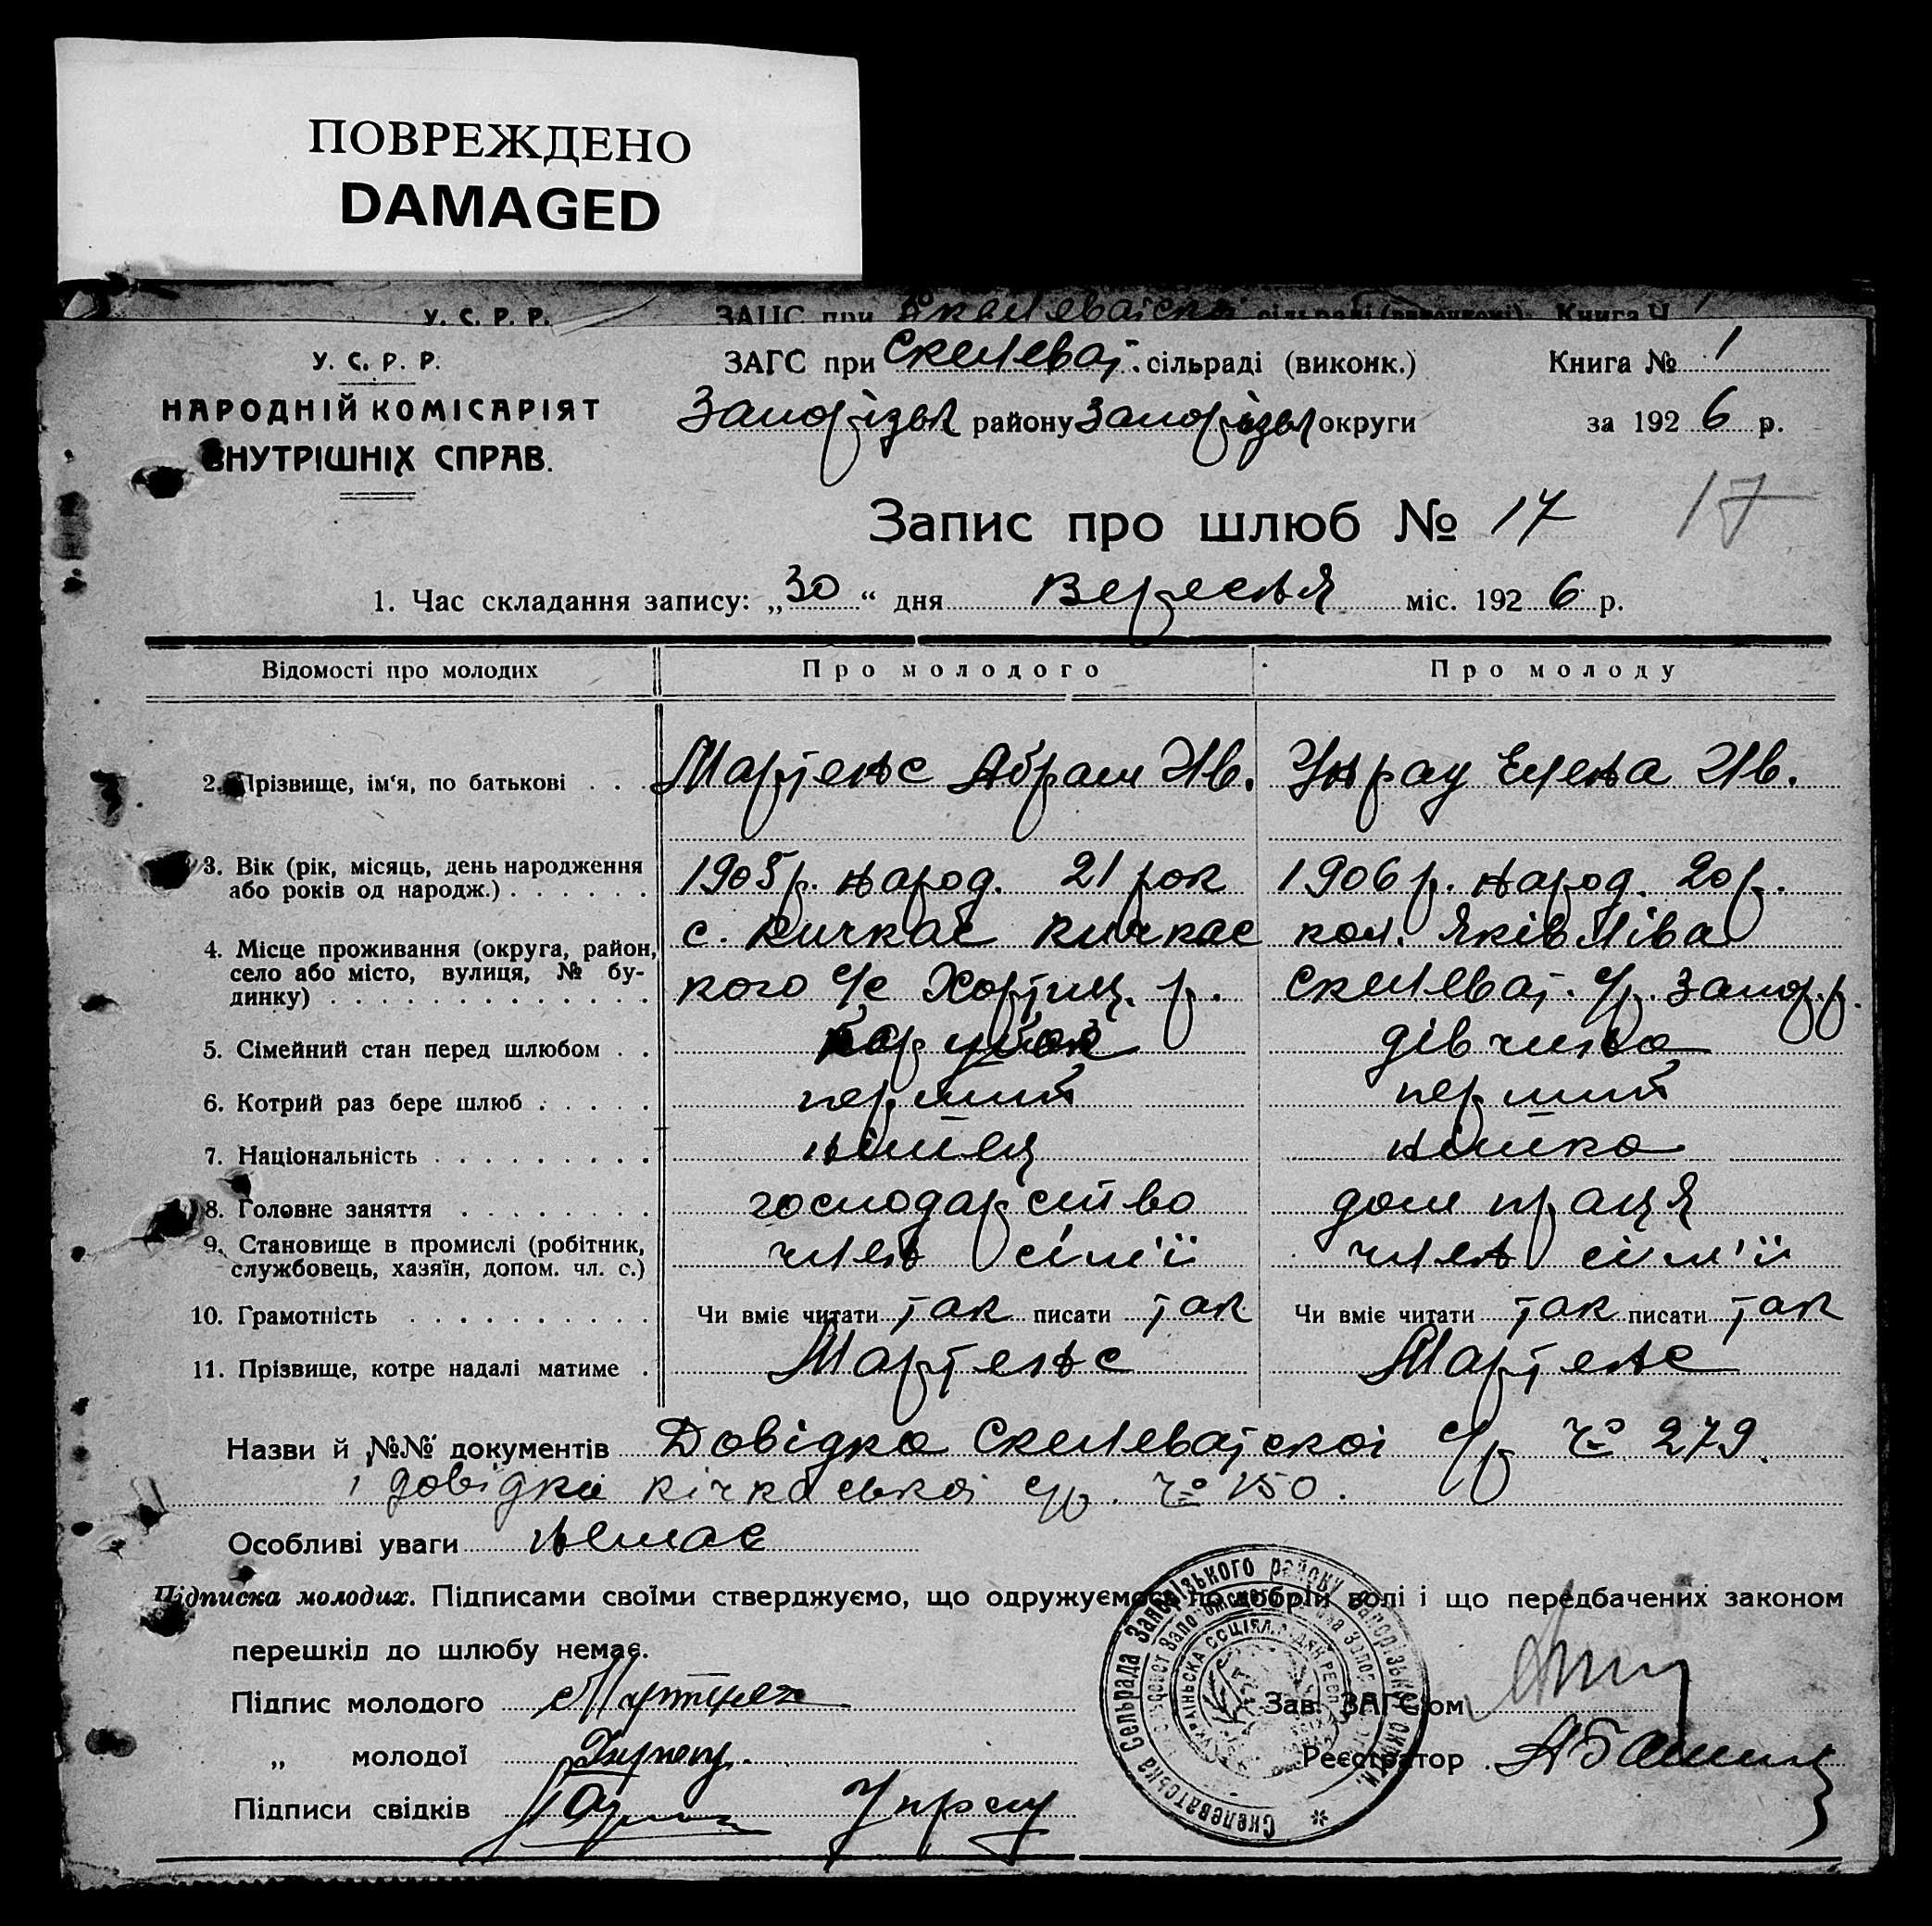 ПОВРЕЖДЕНО
DAMAGED
У. С. Р. Р. ЗАГС при сільраді (виконкомі) Книга Ч. 1
У. С. Р. Р. ЗАГС при Скелеват. сільраді (виконк.) Книга № 1
НАРОДНІЙ КОМІСАРІЯТ Запорізьк району Запорізьк округи за 1926 р.
ВНУТРІШНІХ СПРАВ.
Запис про шлюб № 17 17
1. Час складання запису: „30“ дня Вересня міс. 1926 р.
Відомості про молодих Про молодого Про молоду
2. Прізвище, ім'я, по батькові Мартенс Абрам Ив. Унрау Елена Ив.
3. Вік (рік, місяць, день народження
або років од народж.) 1905 р. народ. 21 рок 1906 р. народ. 20 р.
4. Місце проживання (округа, район, с. Кичкас Кичкас кол. Яківліва
село або місто, вулиця, № бу-
динку) кого с/с Хортиц. р. Скелеват. с/р. Запор. р.
5. Сімейний стан перед шлюбом парубок дівчина
6. Котрий раз бере шлюб перший перший
7. Національність німець німка
8. Головне заняття господарство дом праця
9. Становище в промислі (робітник,
службовець, хазяїн, допом. чл. с.) член сім'ї член сім'ї
10. Грамотність Чи вміє читати так писати так Чи вміє читати так писати так
11. Прізвище, котре надалі матиме Мартенс Мартенс
Назви й №№ документів Довідка Скелеватскоі с/р ч° 279.
і довідка кічкаськоі с/р. ч° 150.
Особливі уваги немає
Підписка молодих. Підписами своїми стверджуємо, що одружуємось по добрій волі і що передбачених законом
перешкід до шлюбу немає.
Підпис молодого Мартенс Зав. ЗАГС'ом
„ молодої Реєстратор
Підписи свідків Унрау
Скелеватська Сельрада Запорізького району Запорізької округи.